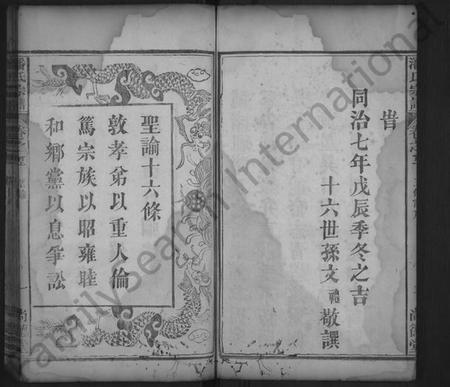 潘氏宗譜
旹
同治七年戊辰季冬之吉
十六世孫文禮敬譔
聖諭十六條
敦孝弟以重人倫
篤宗族以昭雍睦
和鄉黨以息爭訟
潘氏宗譜
FamilySearch International